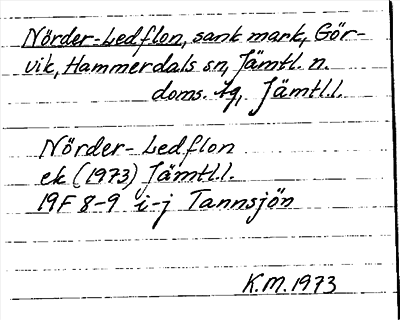 Nörder-Ledflon, sank mark, Gör-
vik, Hammerdals sn, Jämtl. n.
doms. tg, Jämtl.l.
Nörder-Ledflon
ek (1973) Jämtl.l.
19F 8-9 i-j Tannsjön
K.M. 1973